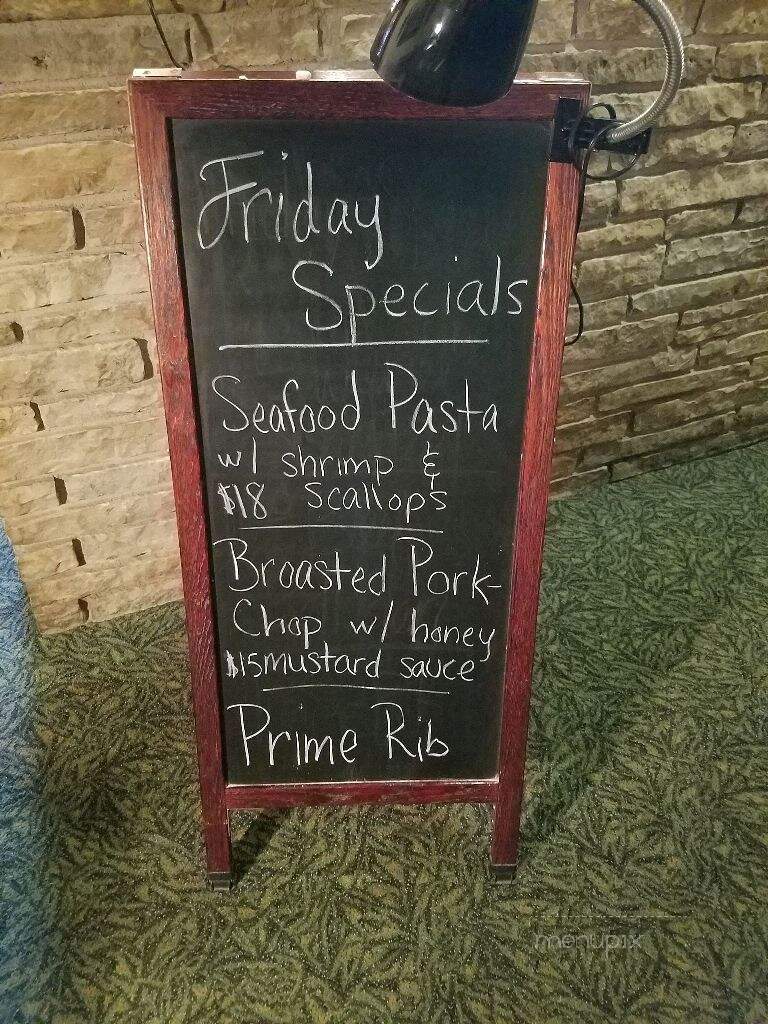 Friday
Specials
Seafood Pasta
w/ shrimp &
$18 Scallops
Broasted Pork-
Chop w/ honey
$15 mustard sauce
Prime Rib
menupix